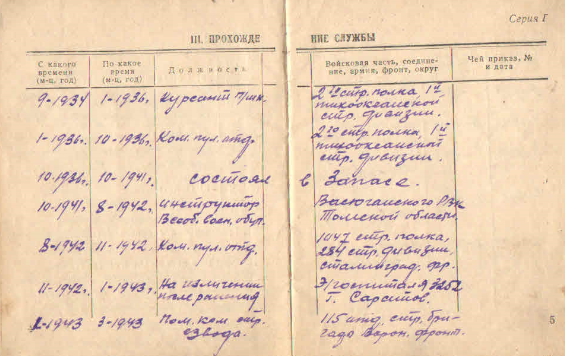 Серия Г
III. ПРОХОЖДЕ
НИЕ СЛУЖБЫ
С какого
времени
(м-ц, год)
По какое
время
(м-ц, год)
Должность
Войсковая часть, соедине-
ние, армия, фронт, округ
Чей приказ, №
и дата
9-1934 1-1936г. Курсант
2го стр. полка 1й
тихоокеанской
стр. дивизии.
1-1936г. 10-1936г. Ком. пул. отд.
2го стр. полка, 1й
тихоокеанской
стр. дивизии.
10-1936г. 10-1941г. состоял
в Запасе.
10-1941г. 8-1942г. Инструктор
Всеоб. воен. обуч.
Васюганского РВК
Томской области
8-1942 11-1942г. Ком. пул. отд.
1047 стр. полка,
284 стр. дивизии,
сталинград. фр.
11-1942г. 1-1943г. На излечении
после
Э/госпиталя
1-1943 3-1943 Пом. ком. стр.
взвода.
115 отд. стр. бри-
гада Ворон. фронт.
5